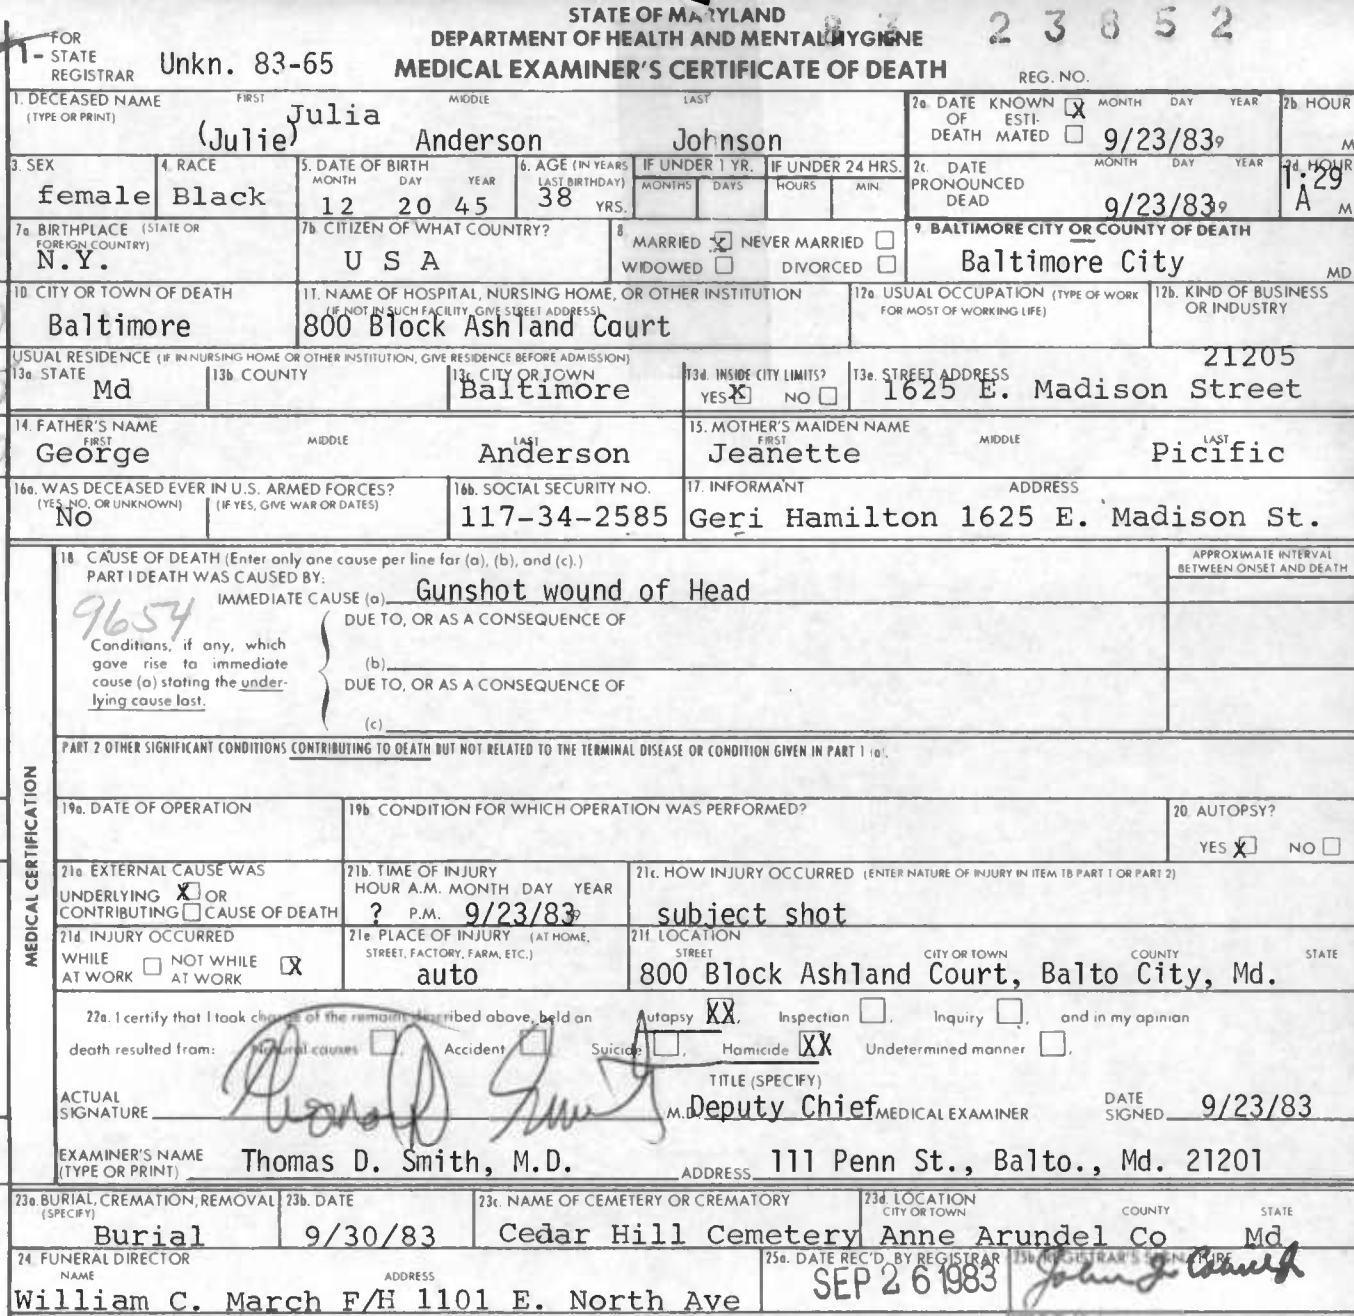 STATE OF MARYLAND
DEPARTMENT OF HEALTH AND MENTAL HYGIENE
MEDICAL EXAMINER'S CERTIFICATE OF DEATH
83 23852
REG. NO.
1- FOR STATE REGISTRAR Unkn. 83-65
1. DECEASED NAME (TYPE OR PRINT) FIRST MIDDLE LAST
Julia
(Julie) Anderson Johnson
2a DATE OF DEATH KNOWN X ESTIMATED MONTH DAY YEAR
9/23/83 19
2b HOUR M
3. SEX female
4. RACE Black
5. DATE OF BIRTH MONTH DAY YEAR
12 20 45
6. AGE (IN YEARS LAST BIRTHDAY) 38 YRS.
IF UNDER 1 YR. MONTHS DAYS
IF UNDER 24 HRS. HOURS MIN
2c. DATE PRONOUNCED DEAD MONTH DAY YEAR
9/23/83 19
2d HOUR 1:29 A M
7a BIRTHPLACE (STATE OR FOREIGN COUNTRY)
N.Y.
7b CITIZEN OF WHAT COUNTRY?
U S A
8 MARRIED X NEVER MARRIED
WIDOWED DIVORCED
9 BALTIMORE CITY OR COUNTY OF DEATH
Baltimore City MD
10 CITY OR TOWN OF DEATH
Baltimore
11. NAME OF HOSPITAL, NURSING HOME, OR OTHER INSTITUTION
(IF NOT IN SUCH FACILITY, GIVE STREET ADDRESS)
800 Block Ashland Court
12a USUAL OCCUPATION (TYPE OF WORK FOR MOST OF WORKING LIFE)
12b. KIND OF BUSINESS OR INDUSTRY
USUAL RESIDENCE (IF IN NURSING HOME OR OTHER INSTITUTION, GIVE RESIDENCE BEFORE ADMISSION)
13a STATE Md
13b COUNTY
13c CITY OR TOWN Baltimore
13d. INSIDE CITY LIMITS? YES X NO
13e. STREET ADDRESS 21205
1625 E. Madison Street
14. FATHER'S NAME FIRST MIDDLE LAST
George Anderson
15. MOTHER'S MAIDEN NAME FIRST MIDDLE LAST
Jeanette Picific
16a. WAS DECEASED EVER IN U.S. ARMED FORCES?
(YES, NO, OR UNKNOWN) (IF YES, GIVE WAR OR DATES)
No
16b. SOCIAL SECURITY NO.
117-34-2585
17. INFORMANT ADDRESS
Geri Hamilton 1625 E. Madison St.
MEDICAL CERTIFICATION
18 CAUSE OF DEATH (Enter only one cause per line for (a), (b), and (c).)
PART I DEATH WAS CAUSED BY:
IMMEDIATE CAUSE (a) Gunshot wound of Head
APPROXIMATE INTERVAL BETWEEN ONSET AND DEATH
9654
DUE TO, OR AS A CONSEQUENCE OF
Conditions, if any, which
gave rise to immediate
cause (a) stating the under-
lying cause last.
(b)
DUE TO, OR AS A CONSEQUENCE OF
(c)
PART 2 OTHER SIGNIFICANT CONDITIONS CONTRIBUTING TO DEATH BUT NOT RELATED TO THE TERMINAL DISEASE OR CONDITION GIVEN IN PART 1 (a).
19a. DATE OF OPERATION
19b CONDITION FOR WHICH OPERATION WAS PERFORMED?
20 AUTOPSY?
YES X NO
21a EXTERNAL CAUSE WAS
UNDERLYING X OR
CONTRIBUTING CAUSE OF DEATH
21b. TIME OF INJURY
HOUR A.M. MONTH DAY YEAR
? P.M. 9/23/83 19
21c. HOW INJURY OCCURRED (ENTER NATURE OF INJURY IN ITEM 18 PART 1 OR PART 2)
subject shot
21d INJURY OCCURRED
WHILE AT WORK NOT WHILE AT WORK X
21e PLACE OF INJURY (AT HOME, STREET, FACTORY, FARM, ETC.)
auto
21f LOCATION
STREET CITY OR TOWN COUNTY STATE
800 Block Ashland Court, Balto City, Md.
22a. I certify that I took charge of the remains described above, held an Autopsy XX, Inspection , Inquiry , and in my opinion
death resulted from: Natural causes , Accident , Suicide , Homicide XX Undetermined manner ,
TITLE (SPECIFY)
ACTUAL SIGNATURE M.D. Deputy Chief MEDICAL EXAMINER DATE SIGNED 9/23/83
EXAMINER'S NAME (TYPE OR PRINT) Thomas D. Smith, M.D. ADDRESS 111 Penn St., Balto., Md. 21201
23a. BURIAL, CREMATION, REMOVAL (SPECIFY)
Burial
23b. DATE
9/30/83
23c. NAME OF CEMETERY OR CREMATORY
Cedar Hill Cemetery
23d. LOCATION
CITY OR TOWN COUNTY STATE
Anne Arundel Co Md
24 FUNERAL DIRECTOR
NAME ADDRESS
William C. March F/H 1101 E. North Ave
25a. DATE REC'D. BY REGISTRAR
SEP 26 1983
25b. REGISTRAR'S SIGNATURE